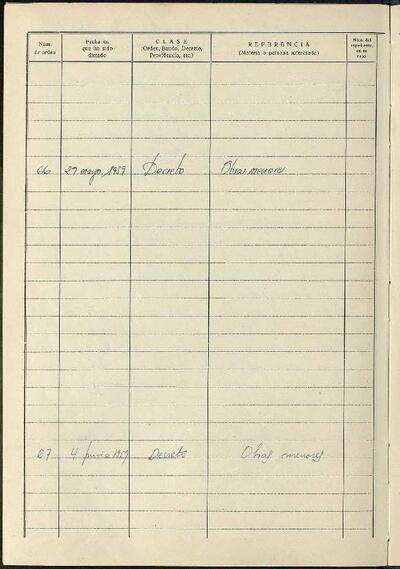 Núm. de orden
Fecha en que ha sido dictado
CLASE
(Orden, Bando, Decreto, Providencia, etc.)
REFERENCIA
(Materia o persona interesada)
Núm. del expediente, en su caso
66 29 mayo 1959 Decreto Obras menores
67 4 junio 1959 Decreto Obras menores